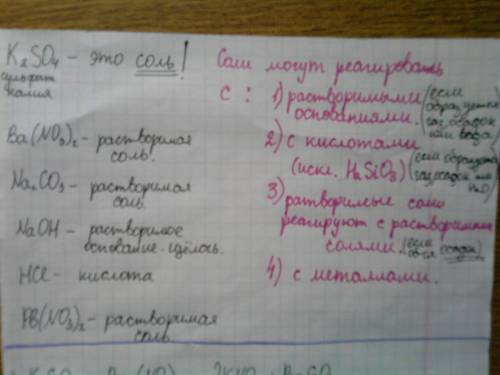 K₂SO₄ – это соль!
сульфат
калия
Ba(NO₃)₂ – растворимая
соль.
Na₂CO₃ – растворимая
соль
NaOH – растворимое
основание – щёлочь.
HCl – кислота
PB(NO₃)₂ – растворимая
соль
Соли могут реагировать
с: 1) растворимыми
основаниями. (если
образуется
газ, осадок
или вода)
2) с кислотами
(искл. H₂SiO₃) (если образуется
газ, осадок или
H₂O)
3) ратворимые соли
реагируют с растворимыми
солями. (если
обр-ся осадок)
4) с металлами.